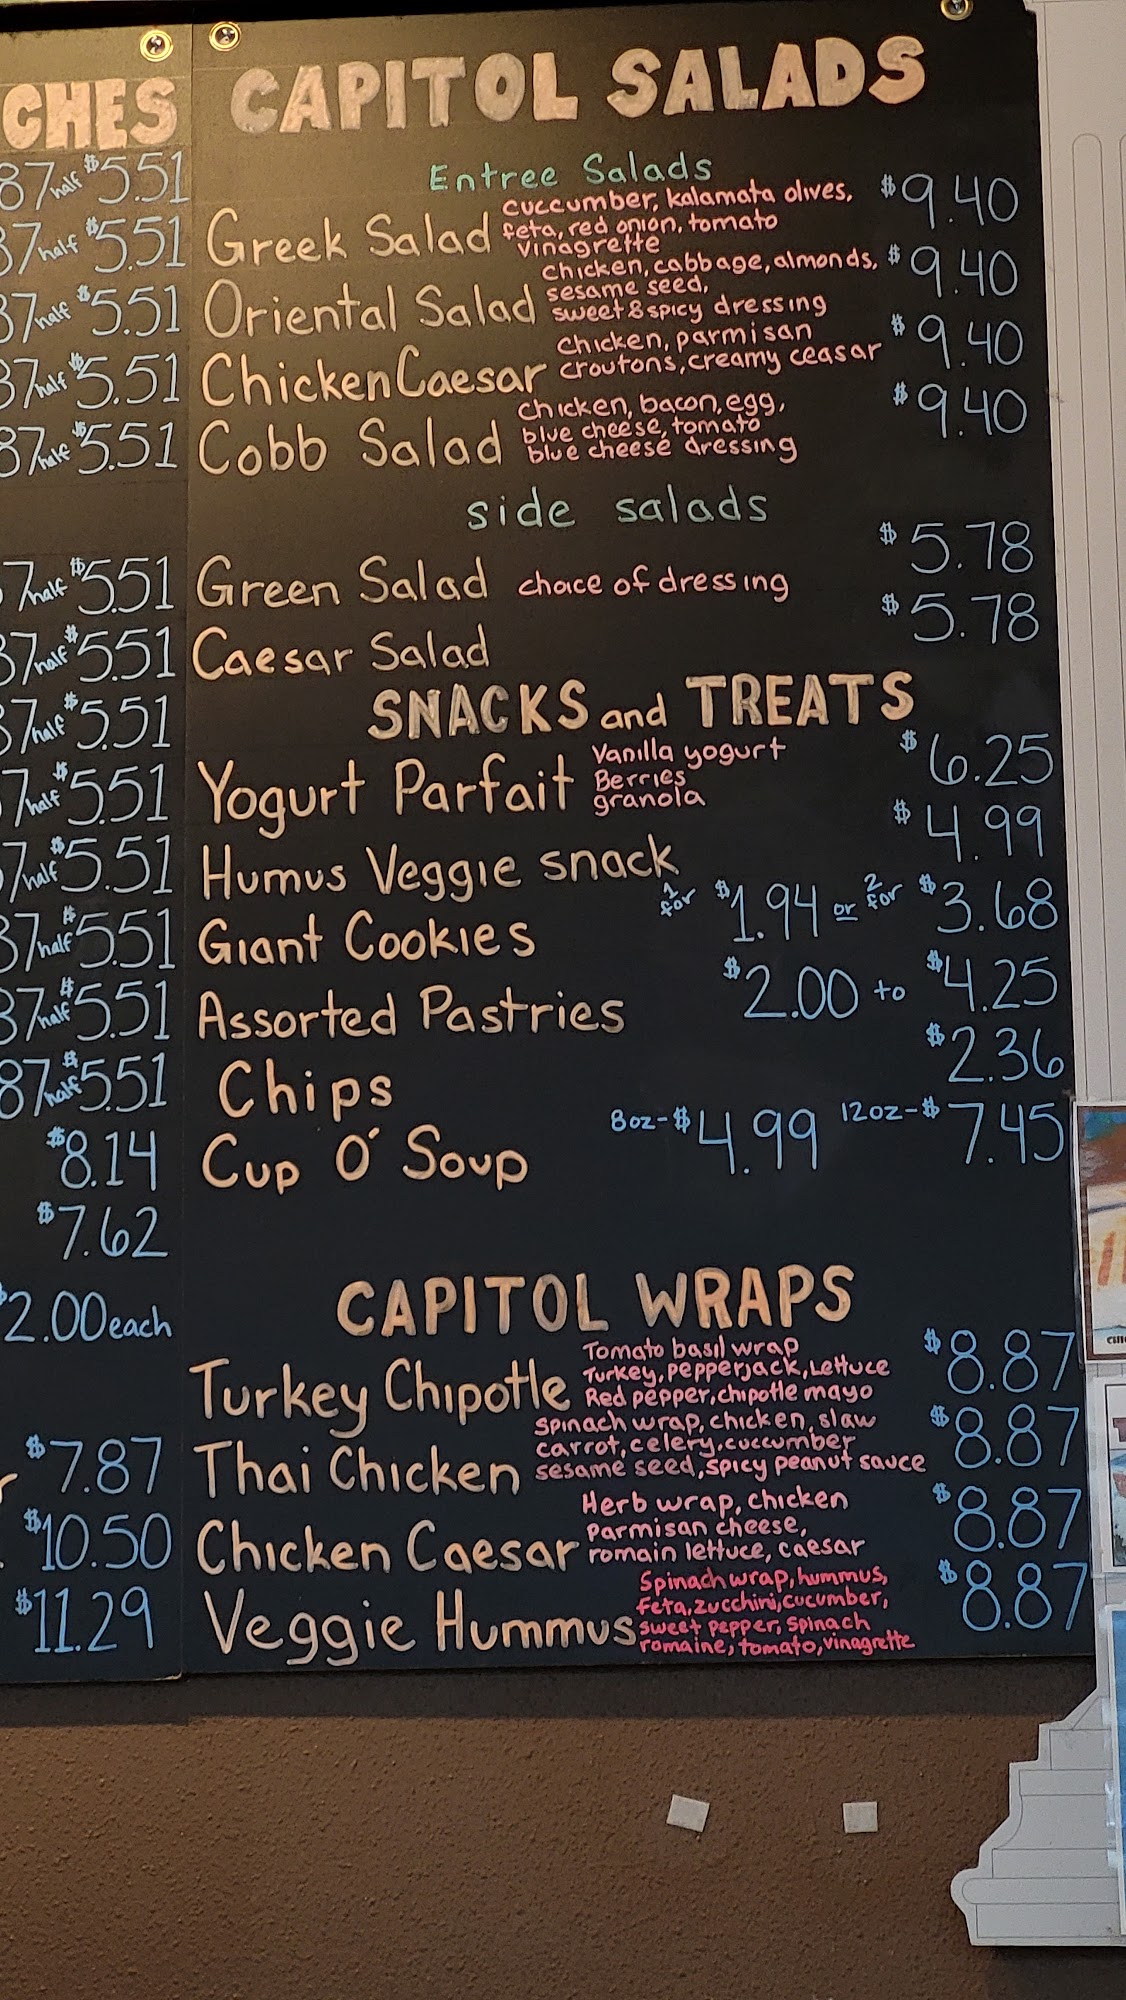 CHES
87 half $5.51
87 half $5.51
87 half $5.51
87 half $5.51
87 half $5.51
7 half $5.51
87 half $5.51
87 half $5.51
7 half $5.51
7 half $5.51
87 half $5.51
87 half $5.51
87 half $5.51
$8.14
$7.62
$2.00 each
$7.87
$10.50
$11.29
CAPITOL SALADS
Entree Salads
Greek Salad cuccumber, kalamata olives, $9.40
feta, red onion, tomato
vinagrette
Oriental Salad chicken, cabbage, almonds, $9.40
sesame seed,
sweet & spicy dressing
Chicken Caesar chicken, parmisan $9.40
croutons, creamy ceasar
Cobb Salad chicken, bacon, egg, $9.40
blue cheese, tomato
blue cheese dressing
side salads
Green Salad choace of dressing $5.78
Caesar Salad $5.78
SNACKS and TREATS
Yogurt Parfait Vanilla yogurt $6.25
Berries
granola
Humus Veggie snack $4.99
Giant Cookies 1 for $1.94 or 2 for $3.68
Assorted Pastries $2.00 to $4.25
Chips $2.36
Cup O' Soup 8oz-$4.99 12oz-$7.45
CAPITOL WRAPS
Turkey Chipotle Tomato basil wrap $8.87
Turkey, pepperjack, Lettuce
Red pepper, chipotle mayo
Thai Chicken Spinach wrap, chicken, slaw $8.87
carrot, celery, cuccumber
sesame seed, spicy peanut sauce
Chicken Caesar Herb wrap, chicken $8.87
Parmisan cheese,
romain lettuce, caesar
Veggie Hummus Spinach wrap, hummus, $8.87
feta, zucchini, cucumber,
sweet pepper, spinach
romaine, tomato, vinagrette